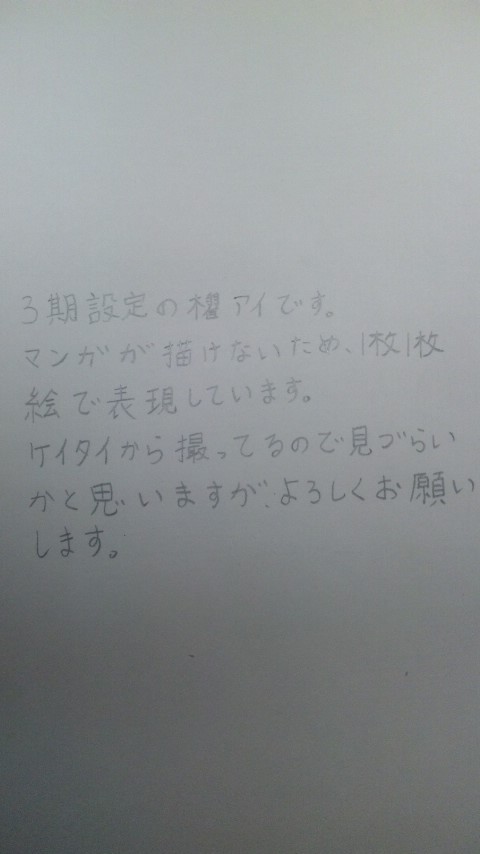 3期設定の櫻アイです。
マンガが描けないため、1枚1枚
絵で表現しています。
ケイタイから撮ってるので見づらい
かと思いますが、よろしくお願い
します。